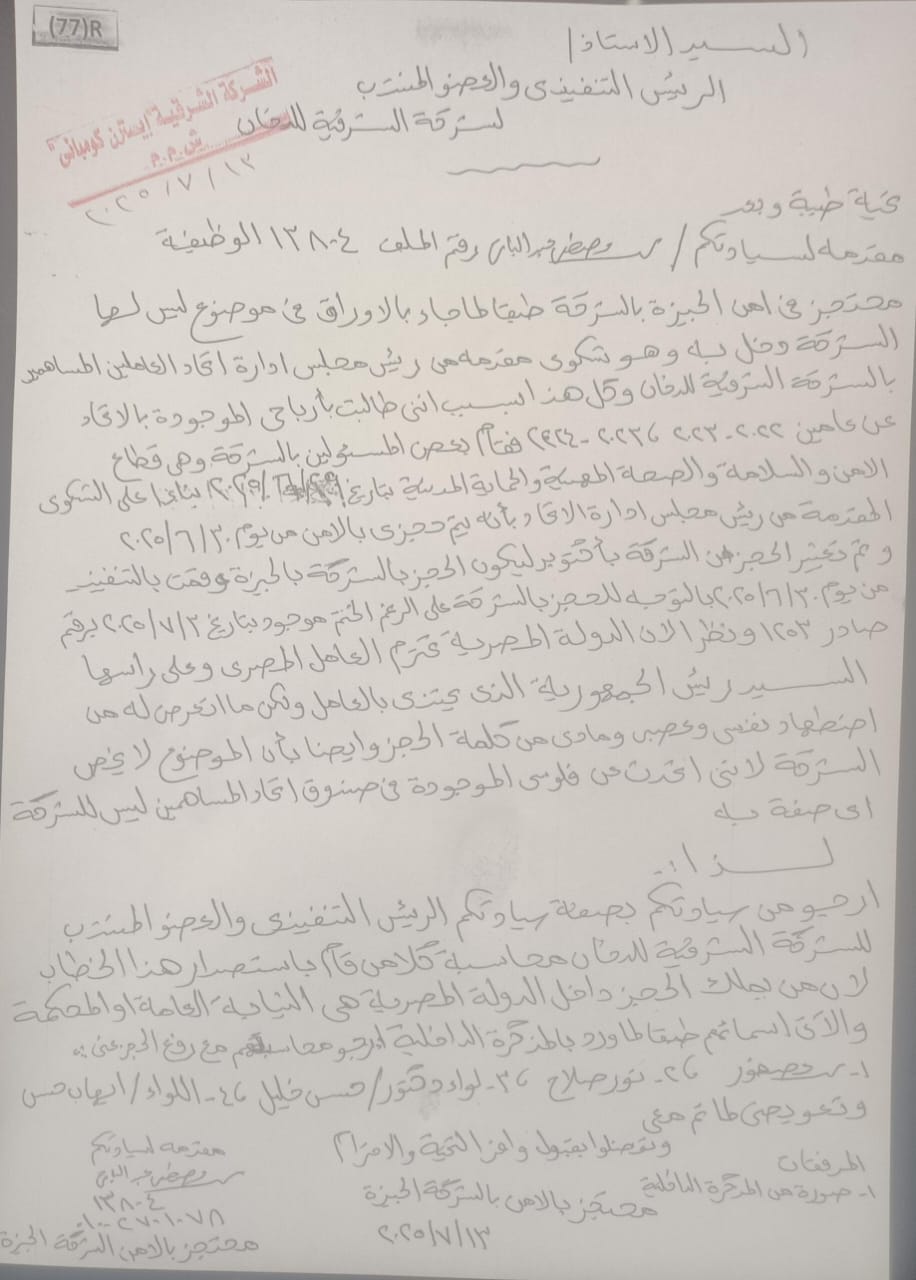 (77)R
السيد الاستاذ/
الرئيس التنفيذى والعضو المنتدب
لشركة الشرقية للدخان
الشركة الشرقية "ايسترن كومبانى"
ش.م.م.
٢٠٢٥/٧/١٣
تحية طيبة وبعد
مقدمه لسيادتكم / مصطفى عبد الباقى رقم الملف ١٣٨٠٤ الوظيفية
محتجز فى امن الجيزة بالشركة طبقا لما جاء بالاوراق فى موضوع ليس لها
الشركة دخل به وهو شكوى مقدمه من رئيس مجلس ادارة اتحاد العاملين المساهمين
بالشركة الشرقية للدخان وكل هذا بسبب اننى طالبت بأرباحى الموجودة بالاتحاد
عن عامين ٢٠٢٢-٢٠٢٣ ، ٢٠٢٣-٢٠٢٤ فقام بعض المسئولين بالشركة وهى قطاع
الامن والسلامة والصحة المهنية والحماية المدنية بتاريخ بناءا على الشكوى
المقدمة من رئيس مجلس ادارة الاتحاد بأنه يتم حجزى بالامن من يوم ٢٠٢٥/٦/٣٠
وتم تغيير الحجز من الشركة بأكتوبر ليكون الحجز بالشركة بالجيزة وقمت بالتنفيذ
من يوم ٢٠٢٥/٦/٣٠ بالتوجه للحجز بالشركة على الرغم الختم موجود بتاريخ ٢٠٢٥/٧/٣ برقم
صادر ١٢٥٣ ونظر الان الدولة المصرية تحترم العامل المصرى وعلى رأسها
السيد رئيس الجمهورية الذى يعتنى بالعامل ولكن ما اتعرض له من
اضطهاد نفسى وعصبى ومادى من كلمة الحجز وايضا بأن الموضوع لا يخص
الشركة لاننى اتحدث عن فلوسى الموجودة فى صندوق اتحاد المساهمين ليس للشركة
اى صفة به
لــذا ..
ارجو من سيادتكم بصفة سيادتكم الرئيس التنفيذى والعضو المنتدب
للشركة الشرقية للدخان محاسبة كلا من قام باستصدار هذا الخطاب
لان من يملك الحجز داخل الدولة المصرية هى النيابة العامة او المحكمة
والآتى اسمائهم طبقا لما ورد بالمذكرة الداخلية ارجو محاسبتهم مع رفع الحجز عنى ..
١- عصفور ٢- نور صلاح ٣- لواء دكتور/ حسن خليل ٤- اللواء/ ايهاب حسن
وتعويضى لما تم معى
وتفضلوا بقبول وافر التحية والاحترام
المرفقات
١- صورة من المذكرة الداخلية
محتجز بالامن بالشركة الجيزة
٢٠٢٥/٧/١٣
مقدمه لسيادتكم
مصطفى عبد الباقى
١٣٨٠٤
٠١٠٠٢٧٠١٠٧٨
محتجز بالامن الشركة الجيزة